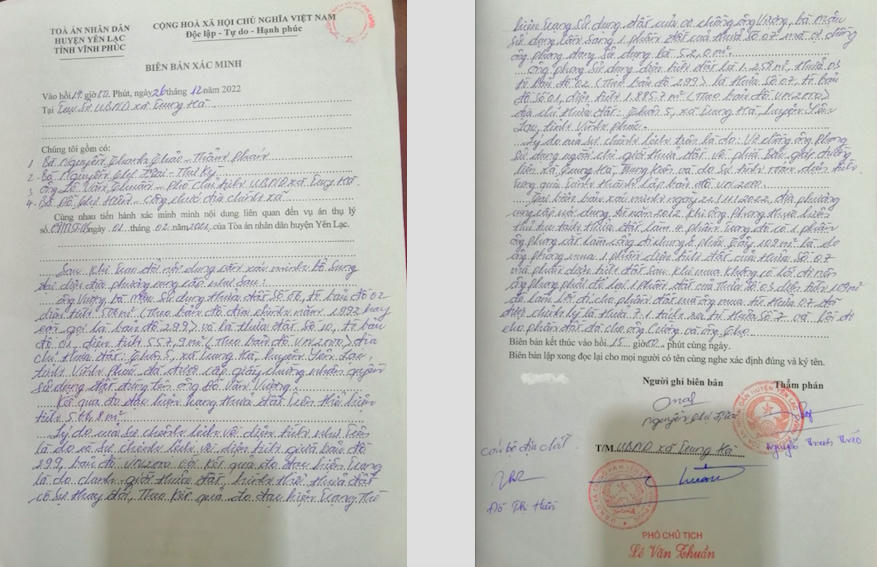 TOÀ ÁN NHÂN DÂN
HUYỆN YÊN LẠC
TỈNH VĨNH PHÚC
CỘNG HOÀ XÃ HỘI CHỦ NGHĨA VIỆT NAM
Độc lập - Tự do - Hạnh phúc
BIÊN BẢN XÁC MINH
Vào hồi 14 giờ 00 Phút, ngày 26 tháng 12 năm 2022
Tại Trụ sở UBND xã Trung Hà
Chúng tôi gồm có:
1. Bà Nguyễn Thanh Thảo - Thẩm phán
2. Bà Nguyễn Thị - Thư ký
3. Ông Lê Văn Thuấn - Phó chủ tịch UBND xã Trung Hà
4. Bà Đỗ Thị Hiền - Công chức địa chính xã
Cùng nhau tiến hành xác minh minh nội dung liên quan đến vụ án thụ lý
số ngày 01 tháng 02 năm 2021, của Tòa án nhân dân huyện Yên Lạc.
Sau khi trao đổi nội dung cần xác minh bổ sung
đại diện địa phương cung cấp như sau:
Ông Vượng, bà Mẫu sử dụng thửa đất số tờ bản đồ 02
diện tích (Theo bản đồ địa chính năm 1992 hay
còn gọi là bản đồ 299) và là thửa đất số 10, tờ bản
đồ 01, diện tích 557,9 m² (Theo bản đồ VN2000) địa
chỉ thửa đất: Thôn 5, xã Trung Hà, huyện Yên Lạc,
tỉnh Vĩnh Phúc đã được cấp giấy chứng nhận quyền
sử dụng đất đứng tên ông Đỗ Văn Vượng.
Kết quả đo đạc hiện trạng thửa đất trên thể hiện
tích m²
Lý do của sự chênh lệch về diện tích như trên
là do có sự chênh lệch về diện tích giữa bản đồ
299, bản đồ VN2000 với kết quả đo đạc hiện trạng
là do danh giới thửa đất, hình thể thửa đất
có sự thay đổi, Theo kết quả đo đạc hiện trạng thì
hiện trạng sử dụng đất của vợ chồng ông Vượng, bà Mẫu
sử dụng lấn sang 1 phần đất của thửa số 07 mà vợ chồng
ông Phong đang sử dụng là 52,0 m².
Ông Phong sử dụng diện tích đất là 1.258 m², thửa
tờ bản đồ 02 (Theo bản đồ 299) là thửa số 07, tờ bản
đồ số 01, diện tích 1.885,7 m² (Theo bản đồ VN2000)
địa chỉ thửa đất: Thôn 5, xã Trung Hà, huyện Yên
Lạc, tỉnh Vĩnh Phúc.
Lý do của sự chênh lệch trên là do: Vợ chồng ông Phong
sử dụng ranh giới thửa đất về phía Bắc giáp đường
liên xã Trung Hà, Trung Kiên và do sự
trong quá trình thành lập bản đồ VN2000.
Tại biên bản xác minh ngày 22/11/2022 địa phương
cung cấp nội dung từ năm 2012 khi ông Phong thực hiện
thủ tục tách thửa đất làm 4 phần trong đó có 1 phần
ông Phong cắt làm cổng đi chung 2 phía 109 m² là do
ông Phong mua 1 phần diện tích đất của thửa số 07
và phần diện tích đất sau khi mua không có lối đi nên
ông Phong phải để lại 1 phần đất của thửa số 03 diện tích 109 m²
để làm lối đi cho phần đất mà ông mua từ thửa 07
chỉnh lý là thửa 7.1 tách ra từ thửa số 7 và lối đi
cho phần đất đã cho ông Cường và ông
Biên bản kết thúc vào hồi 15 giờ 00 phút cùng ngày.
Biên bản lập xong đọc lại cho mọi người có tên cùng nghe xác định đúng và ký tên.
Người ghi biên bản
Thẩm phán
Nguyễn Thị
Nguyễn Thanh Thảo
Cán bộ địa chính
T/M UBND xã Trung Hà
Đỗ Thị Hiền
PHÓ CHỦ TỊCH
Lê Văn Thuấn